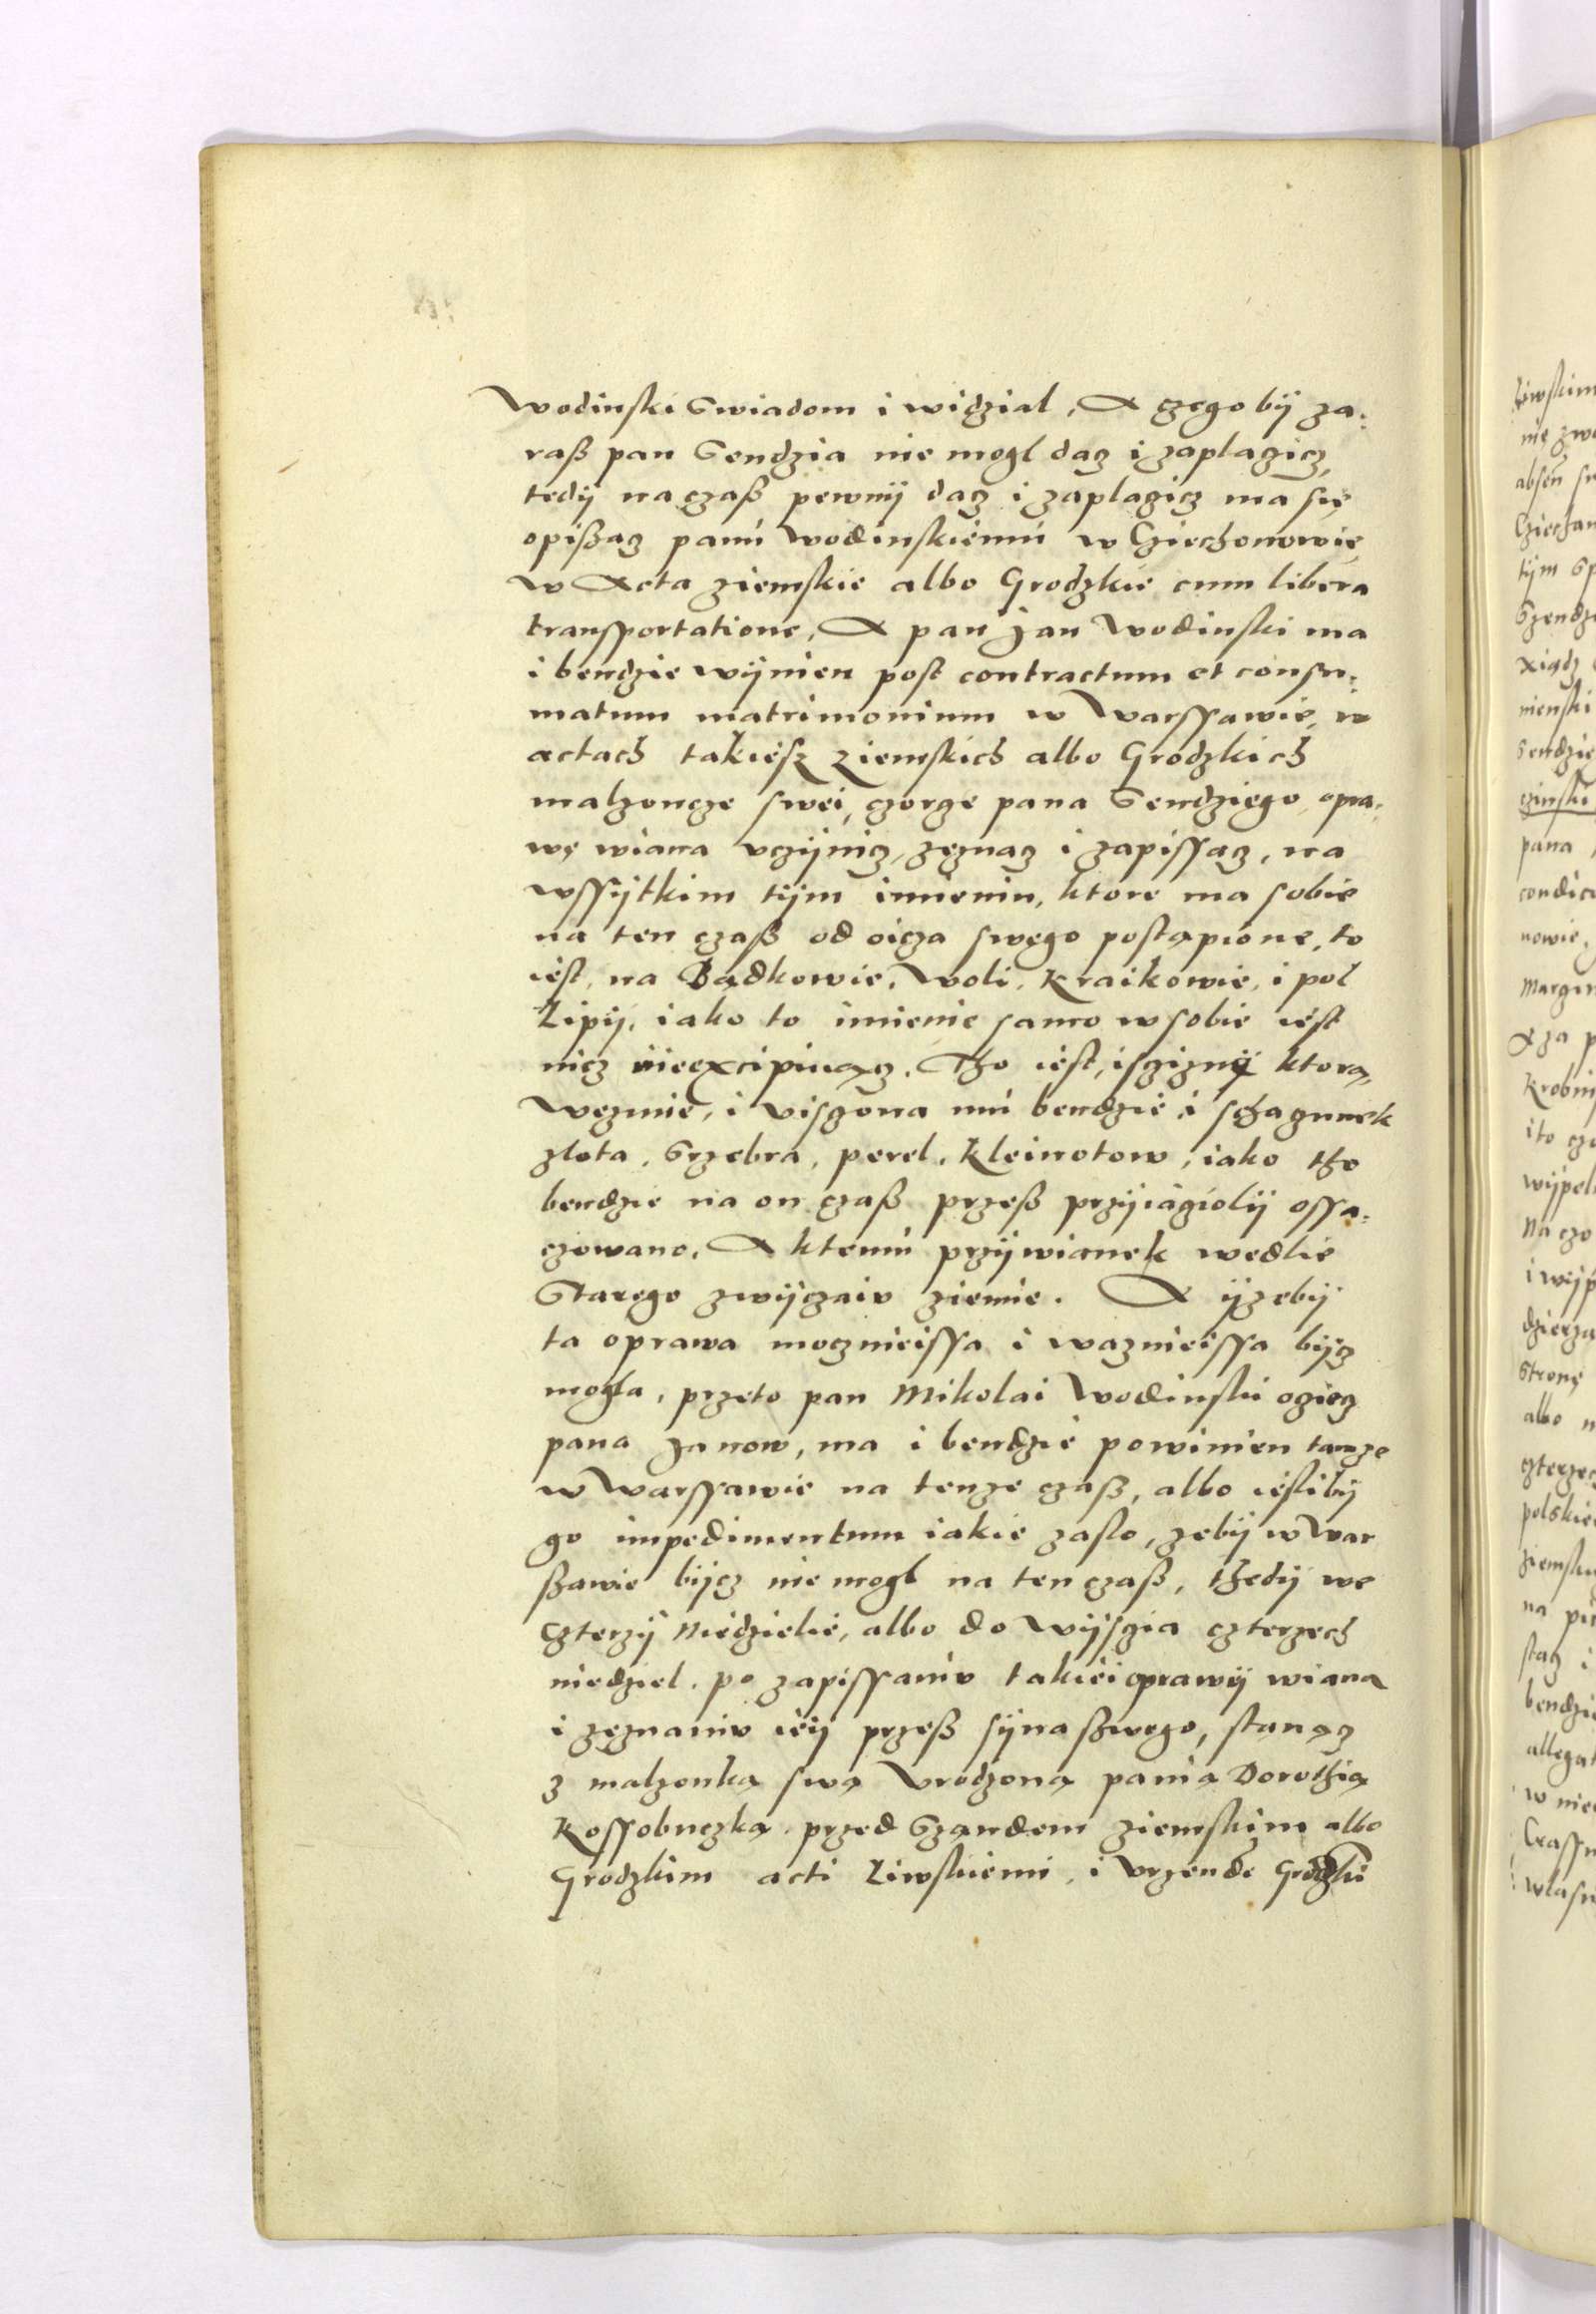 Wodinski Swiadom i widzial, A czego bÿ za:
raß pan Sendzia nie mogl dacz i zaplacicz,
tedÿ na czaß pewnÿ dacz i zaplacicz ma się
opißacz panu Wodinskiemu w Cziechonowie,
w Acta ziemskie albo Grodzkie cum libera
transportatione, A pan Jan Wodinski ma
i bendzie wÿnien post contractum et consu:
matum matrimonium w Warssawie, w
actach takiesz ziemskich albo Grodzkich
malzoncze swei, czorce pana Sendziego opra,
wę wiana vczÿnicz, zęznacz i zapissacz, na
wssÿtkim tÿm imieniu, ktore ma sobie
na ten czaß od oicza swego postąpione, to
iest, na Bądkowie, Woli, Kraikowie, i pol
Lipÿ, iako to imienie samo w sobie iest
nicz nieexcipiuącz. Tho iest, iscziznÿ ktorą,
weznie, i visczona mu bendzie i schaczunek
zlota, Srzebra, perel, Kleinotow, iako tho
bendzie na on czaß przeß przÿiaciolÿ ossa:
czowano, A ktemu przÿwianek wedlie
Starego zwÿczaiv ziemie. A ÿzebÿ
ta oprawa mocznieissa i waznieissa bÿcz
mogla, przeto pan Mikolai Wodinski ociecz
pana Janow, ma i bendzie powinien tamze
w Warssawie na tenze czaß, albo ieslibÿ
go impedimentum iakie zaslo, zebÿ w War
ßawie bÿcz nie mogl na ten czaß, thedÿ we
czterzÿ Niedzielie, albo do wÿscia czterzech
niedziel, po zapissaniv takiei oprawÿ wiana
i zęznaniv ieÿ przeß sÿna ßwego, stanącz
z malzonką swą Vrodzoną panią Dorothią
Kossobuczką przed Sząndem ziemskim albo
Grodzkim acti Liwskiemi, i Vrzende Grodzki